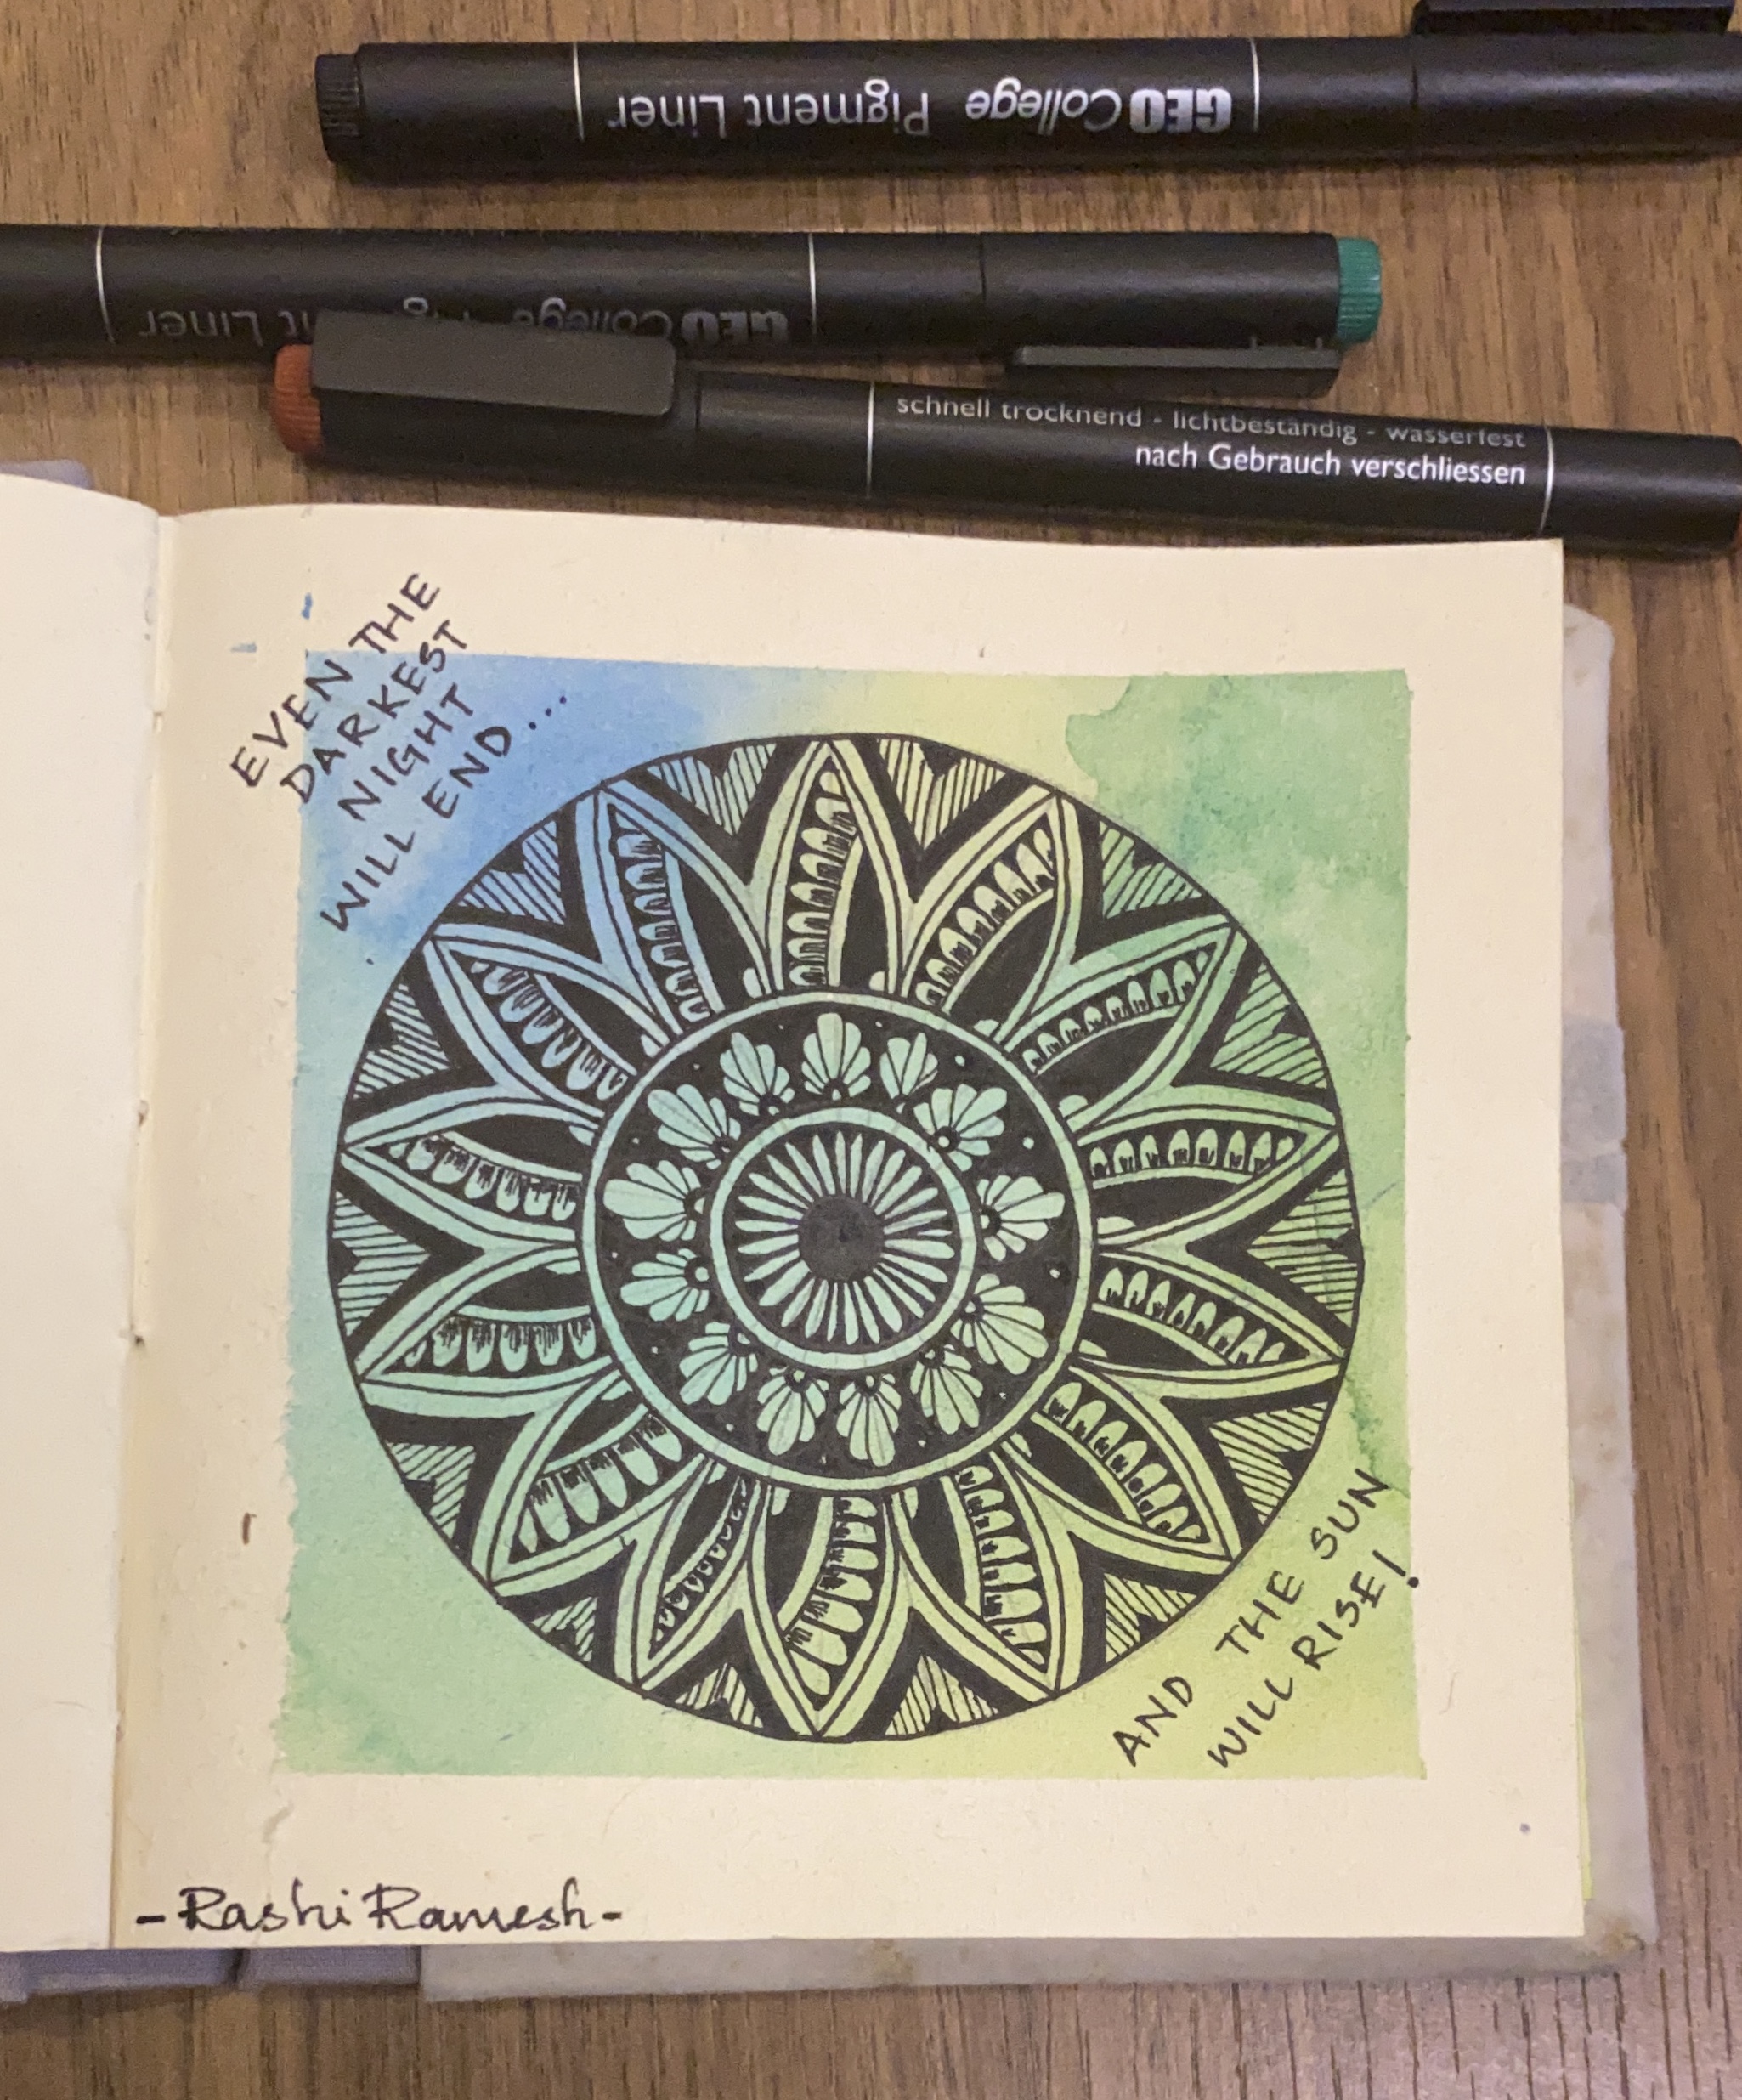 GEO College Pigment Liner
GEO College Pigment Liner
schnell trocknend - lichtbeständig - wasserfest
nach Gebrauch verschliessen
EVEN THE
DARKEST
NIGHT
WILL END...
AND THE SUN
WILL RISE!
- Rashi Ramesh -